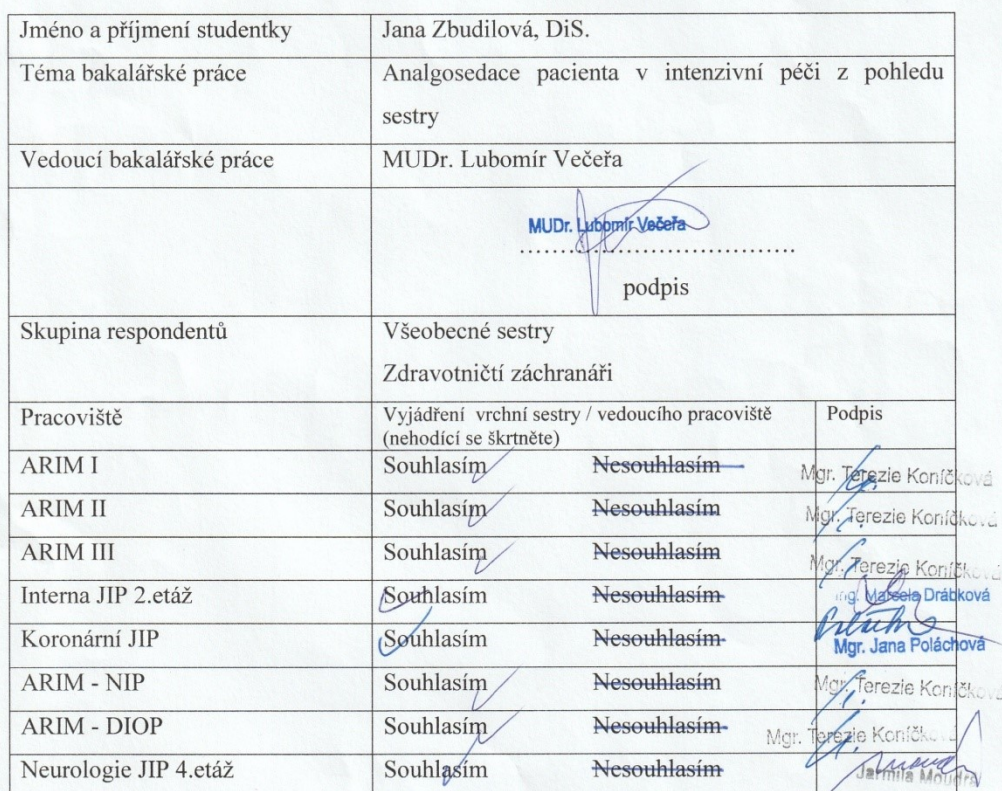 Jméno a příjmení studentky Jana Zbudilová, DiS.
Téma bakalářské práce Analgosedace pacienta v intenzivní péči z pohledu
sestry
Vedoucí bakalářské práce MUDr. Lubomír Večeřa
MUDr. Lubomír Večeřa
........................................
podpis
Skupina respondentů Všeobecné sestry
Zdravotničtí záchranáři
Pracoviště Vyjádření vrchní sestry / vedoucího pracoviště Podpis
(nehodící se škrtněte)
ARIM I Souhlasím Nesouhlasím Mgr. Terezie Koníčková
ARIM II Souhlasím Nesouhlasím Mgr. Terezie Koníčková
ARIM III Souhlasím Nesouhlasím Mgr. Terezie Koníčková
Interna JIP 2.etáž Souhlasím Nesouhlasím Ing. Marcela Drábková
Koronární JIP Souhlasím Nesouhlasím Mgr. Jana Poláchová
ARIM - NIP Souhlasím Nesouhlasím Mgr. Terezie Koníčková
ARIM - DIOP Souhlasím Nesouhlasím Mgr. Terezie Koníčková
Neurologie JIP 4.etáž Souhlasím Nesouhlasím Jarmila Moudrá